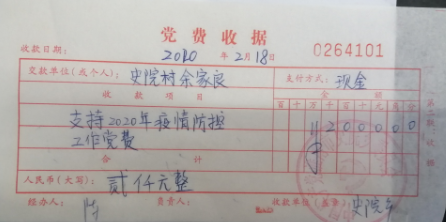 党费收据
收款日期: 2020 年 2 月 18 日 0264101
交款单位(或个人): 史院村余家良 支付方式: 现金
收款项目 金额
百 十 万 千 百 十 元 角 分
支持2020年疫情防控 200000
工作党费
合计
人民币(大写): 贰仟元整
经办人: 负责人: 收款单位(盖章): 史院乡